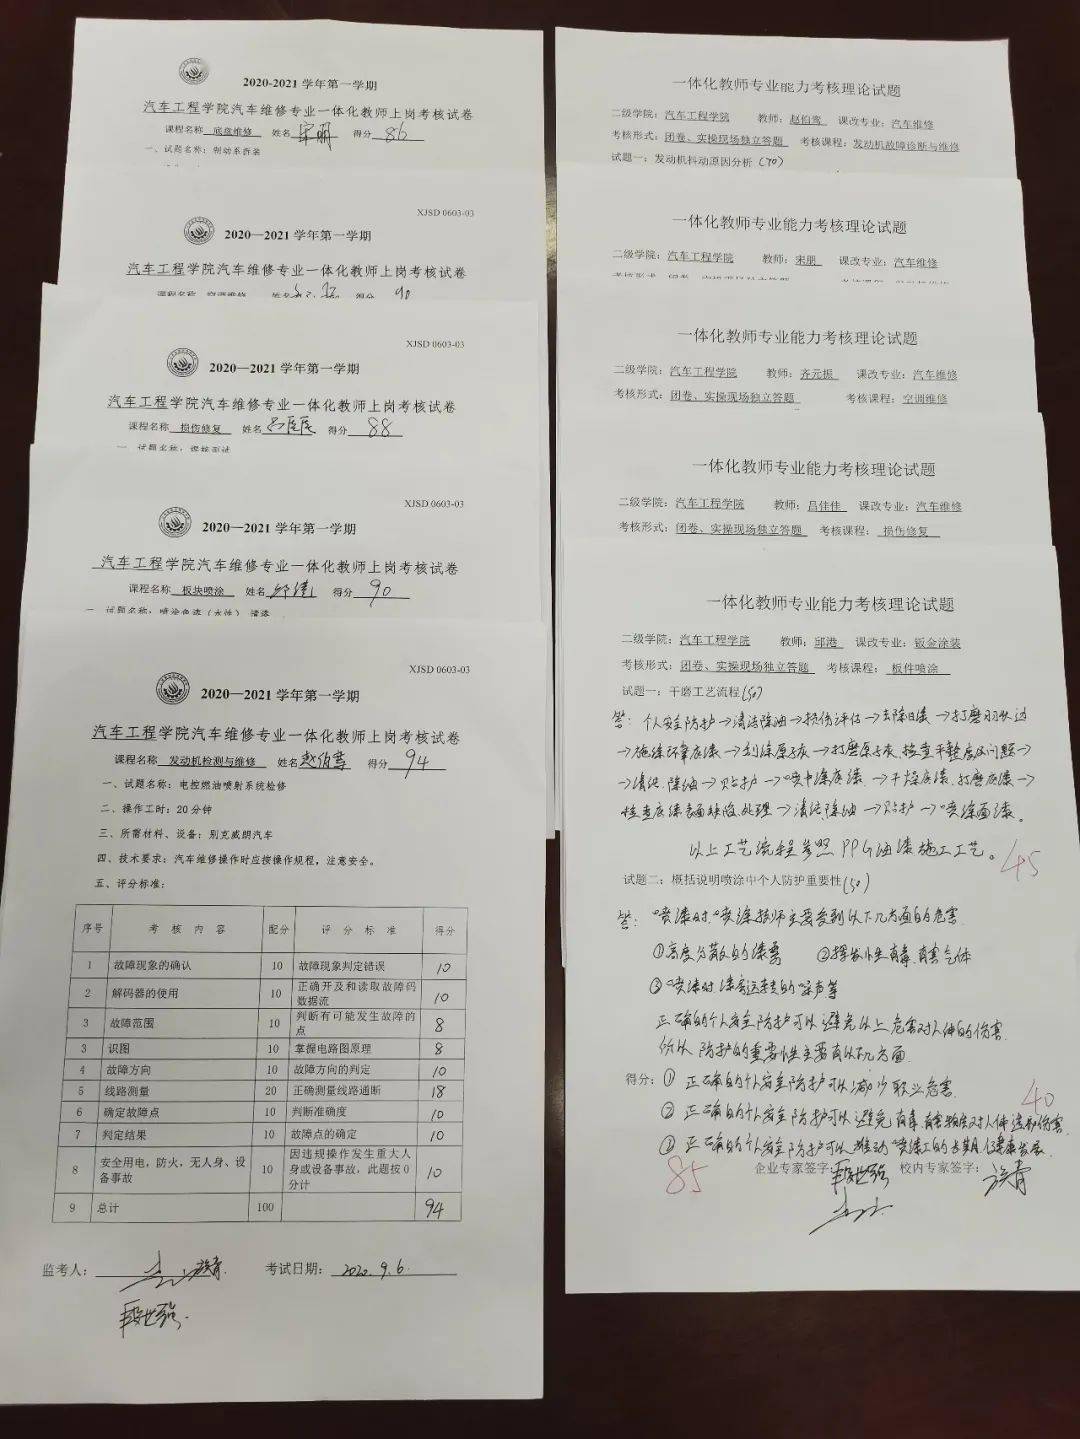 2020-2021 学年第一学期
汽车工程学院汽车维修专业一体化教师上岗考核试卷
课程名称 底盘维修 姓名 宋朋 得分 86
一、试题名称：制动系拆装
XJSD 0603-03
2020—2021 学年第一学期
汽车工程学院汽车维修专业一体化教师上岗考核试卷
课程名称 空调维修 姓名 得分 90
XJSD 0603-03
2020—2021 学年第一学期
汽车工程学院汽车维修专业一体化教师上岗考核试卷
课程名称 损伤修复 姓名 得分 88
XJSD 0603-03
2020—2021 学年第一学期
汽车工程学院汽车维修专业一体化教师上岗考核试卷
课程名称 板块喷涂 姓名 邱港 得分 90
一 试题名称：喷涂色漆（水性）清漆
XJSD 0603-03
2020—2021 学年第一学期
汽车工程学院汽车维修专业一体化教师上岗考核试卷
课程名称 发动机检测与维修 姓名 赵伯鸾 得分 94
一、试题名称：电控燃油喷射系统检修
二、操作工时：20分钟
三、所需材料、设备：别克威朗汽车
四、技术要求：汽车维修操作时应按操作规程，注意安全。
五、评分标准：
序号 考核内容 配分 评分标准 得分
1 故障现象的确认 10 故障现象判定错误 10
2 解码器的使用 10 正确开及和读取故障码数据流 10
3 故障范围 10 判断有可能发生故障的点 8
3 识图 10 掌握电路图原理 8
4 故障方向 10 故障方向的判定 10
5 线路测量 20 正确测量线路通断 18
6 确定故障点 10 判断准确度 10
7 判定结果 10 故障点的确定 10
8 安全用电，防火，无人身、设备事故 10 因违规操作发生重大人身或设备事故，此题按0分计 10
9 总计 100 94
监考人： 考试日期：2020.9.6.
一体化教师专业能力考核理论试题
二级学院：汽车工程学院 教师：赵伯鸾 课改专业：汽车维修
考核形式：闭卷、实操现场独立答题 考核课程：发动机故障诊断与维修
试题一：发动机抖动原因分析（70）
一体化教师专业能力考核理论试题
二级学院：汽车工程学院 教师：宋朋 课改专业：汽车维修
一体化教师专业能力考核理论试题
二级学院：汽车工程学院 教师：齐元振 课改专业：汽车维修
考核形式：闭卷、实操现场独立答题 考核课程：空调维修
一体化教师专业能力考核理论试题
二级学院：汽车工程学院 教师：吕佳佳 课改专业：汽车维修
考核形式：闭卷、实操现场独立答题 考核课程：损伤修复
一体化教师专业能力考核理论试题
二级学院：汽车工程学院 教师：邱港 课改专业：钣金涂装
考核形式：闭卷、实操现场独立答题 考核课程：板件喷涂
试题一：干磨工艺流程（50）
答：个人安全防护→清洁除油→损伤评估→去除旧漆→打磨羽状边
→施涂环氧底漆→刮涂原子灰→打磨原子灰、检查平整度及问题→
→清洁、除油→贴护→喷中涂底漆→干燥底漆、打磨底漆→
检查底漆表面缺陷处理→清洁除油→贴护→喷涂面漆。
以上工艺流程参照PPG油漆施工工艺。 45
试题二：概括说明喷涂中个人防护重要性（50）
答：喷漆时，喷涂技师主要受到以下几方面的危害
①高度分散的漆雾 ②挥发性有毒、有害气体
③喷漆时漆房运转的噪声等
正确的个人安全防护可以避免以上危害对人体的伤害.
所以防护的重要性主要有以下几方面
得分：① 正确的个人安全防护可以减少职业危害.
② 正确的个人安全防护可以避免有毒、有害物质对人体造成伤害. 40
③ 正确的个人安全防护可以推动喷漆工的长期、健康发展.
85 企业专家签字： 校内专家签字：